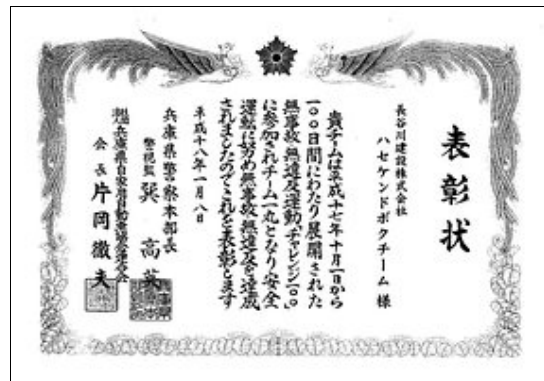 表彰状
長谷川建設株式会社
ハセケンドボクチーム 様
貴チームは平成十七年十月一日から
一〇〇日間にわたり展開された
無事故無違反運動「チャレンジ一〇〇」
に参加されチーム一丸となり安全
運転に努め無事故無違反を達成
されましたのでこれを表彰します
平成十八年一月八日
兵庫県警察本部長
警視監 巽 高英
会長 片岡徹夫